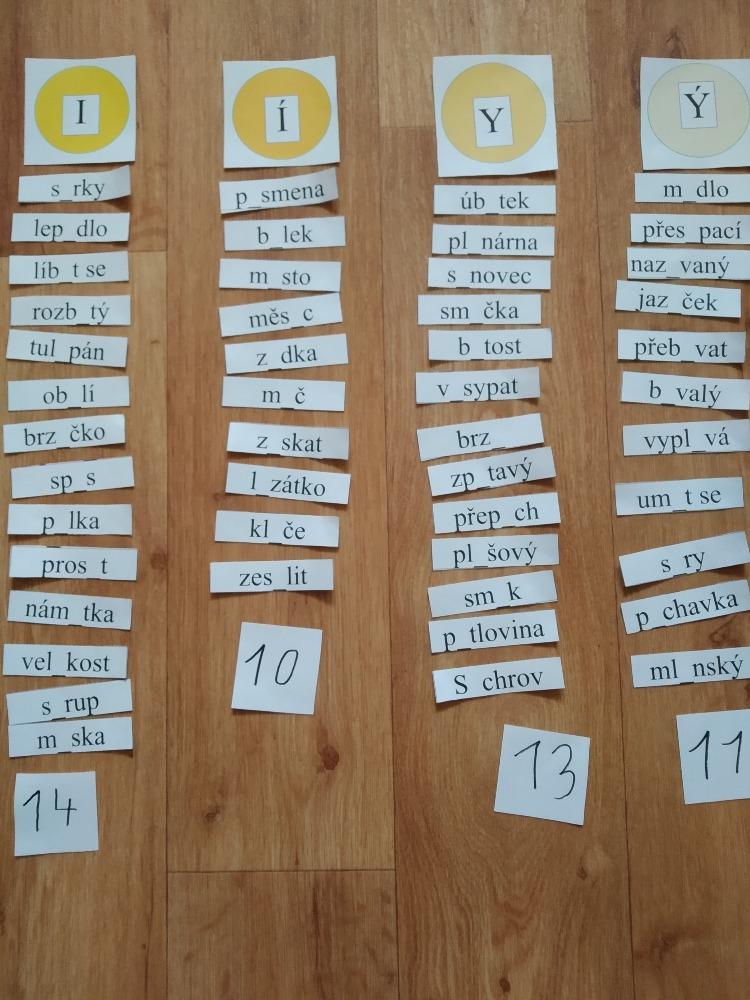 I
s_rky
lep_dlo
líb_t se
rozb_tý
tul_pán
ob_lí
brz_čko
sp_s
p_lka
pros_t
nám_tka
vel_kost
s_rup
m_ska
14
Í
p_smena
b_lek
m_sto
měs_c
z_dka
m_č
z_skat
l_zátko
kl_če
zes_lit
10
Y
úb_tek
pl_nárna
s_novec
sm_čka
b_tost
v_sypat
brz_
zp_tavý
přep_ch
pl_šový
sm_k
p_tlovina
S_chrov
13
Ý
m_dlo
přes_pací
naz_vaný
jaz_ček
přeb_vat
b_valý
vypl_vá
um_t se
s_ry
p_chavka
ml_nský
11